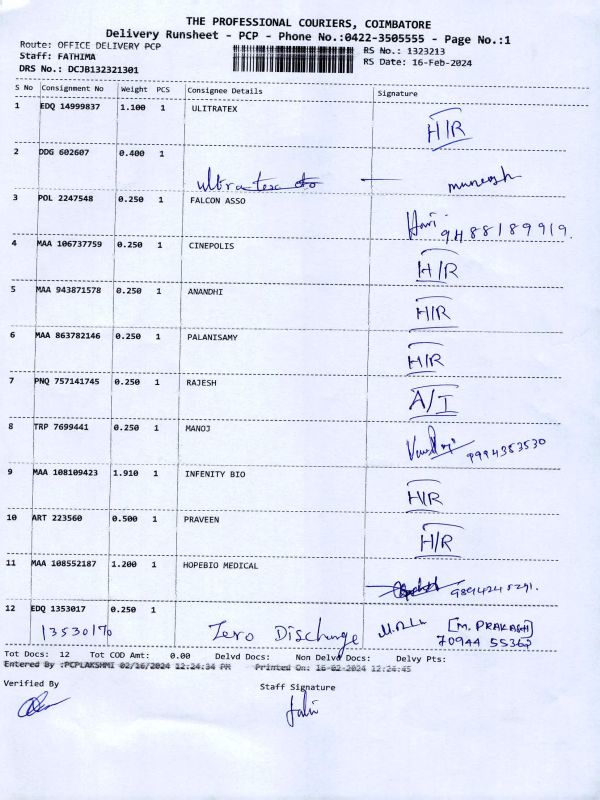 THE PROFESSIONAL COURIERS, COIMBATORE
Delivery Runsheet - PCP - Phone No.:0422-3505555 - Page No.:1
Route: OFFICE DELIVERY PCP
Staff: FATHIMA
DRS No.: DCJB132321301
RS No.: 1323213
RS Date: 16-Feb-2024
S No Consignment No Weight PCS Consignee Details Signature
1 EDQ 14999837 1.100 1 ULITRATEX H/R
2 DDG 602607 0.400 1
ultratex muneesh
3 POL 2247548 0.250 1 FALCON ASSO
Hari 9488189919.
4 MAA 106737759 0.250 1 CINEPOLIS H/R
5 MAA 943871578 0.250 1 ANANDHI H/R
6 MAA 863782146 0.250 1 PALANISAMY H/R
7 PNQ 757141745 0.250 1 RAJESH A/I
8 TRP 7699441 0.250 1 MANOJ 9994353530
9 MAA 108109423 1.910 1 INFENITY BIO H/R
10 ART 223560 0.500 1 PRAVEEN H/R
11 MAA 108552187 1.200 1 HOPEBIO MEDICAL
9894245291.
12 EDQ 1353017 0.250 1
13530170 Zero Discharge [M. PRAKASH]
70944 55362
Tot Docs: 12 Tot COD Amt: 0.00 Delvd Docs: Non Delvd Docs: Delvy Pts:
Entered By :PCPLAKSHMI 02/16/2024 12:24:34 PM Printed On: 16-02-2024 12:24:45
Verified By
Staff Signature